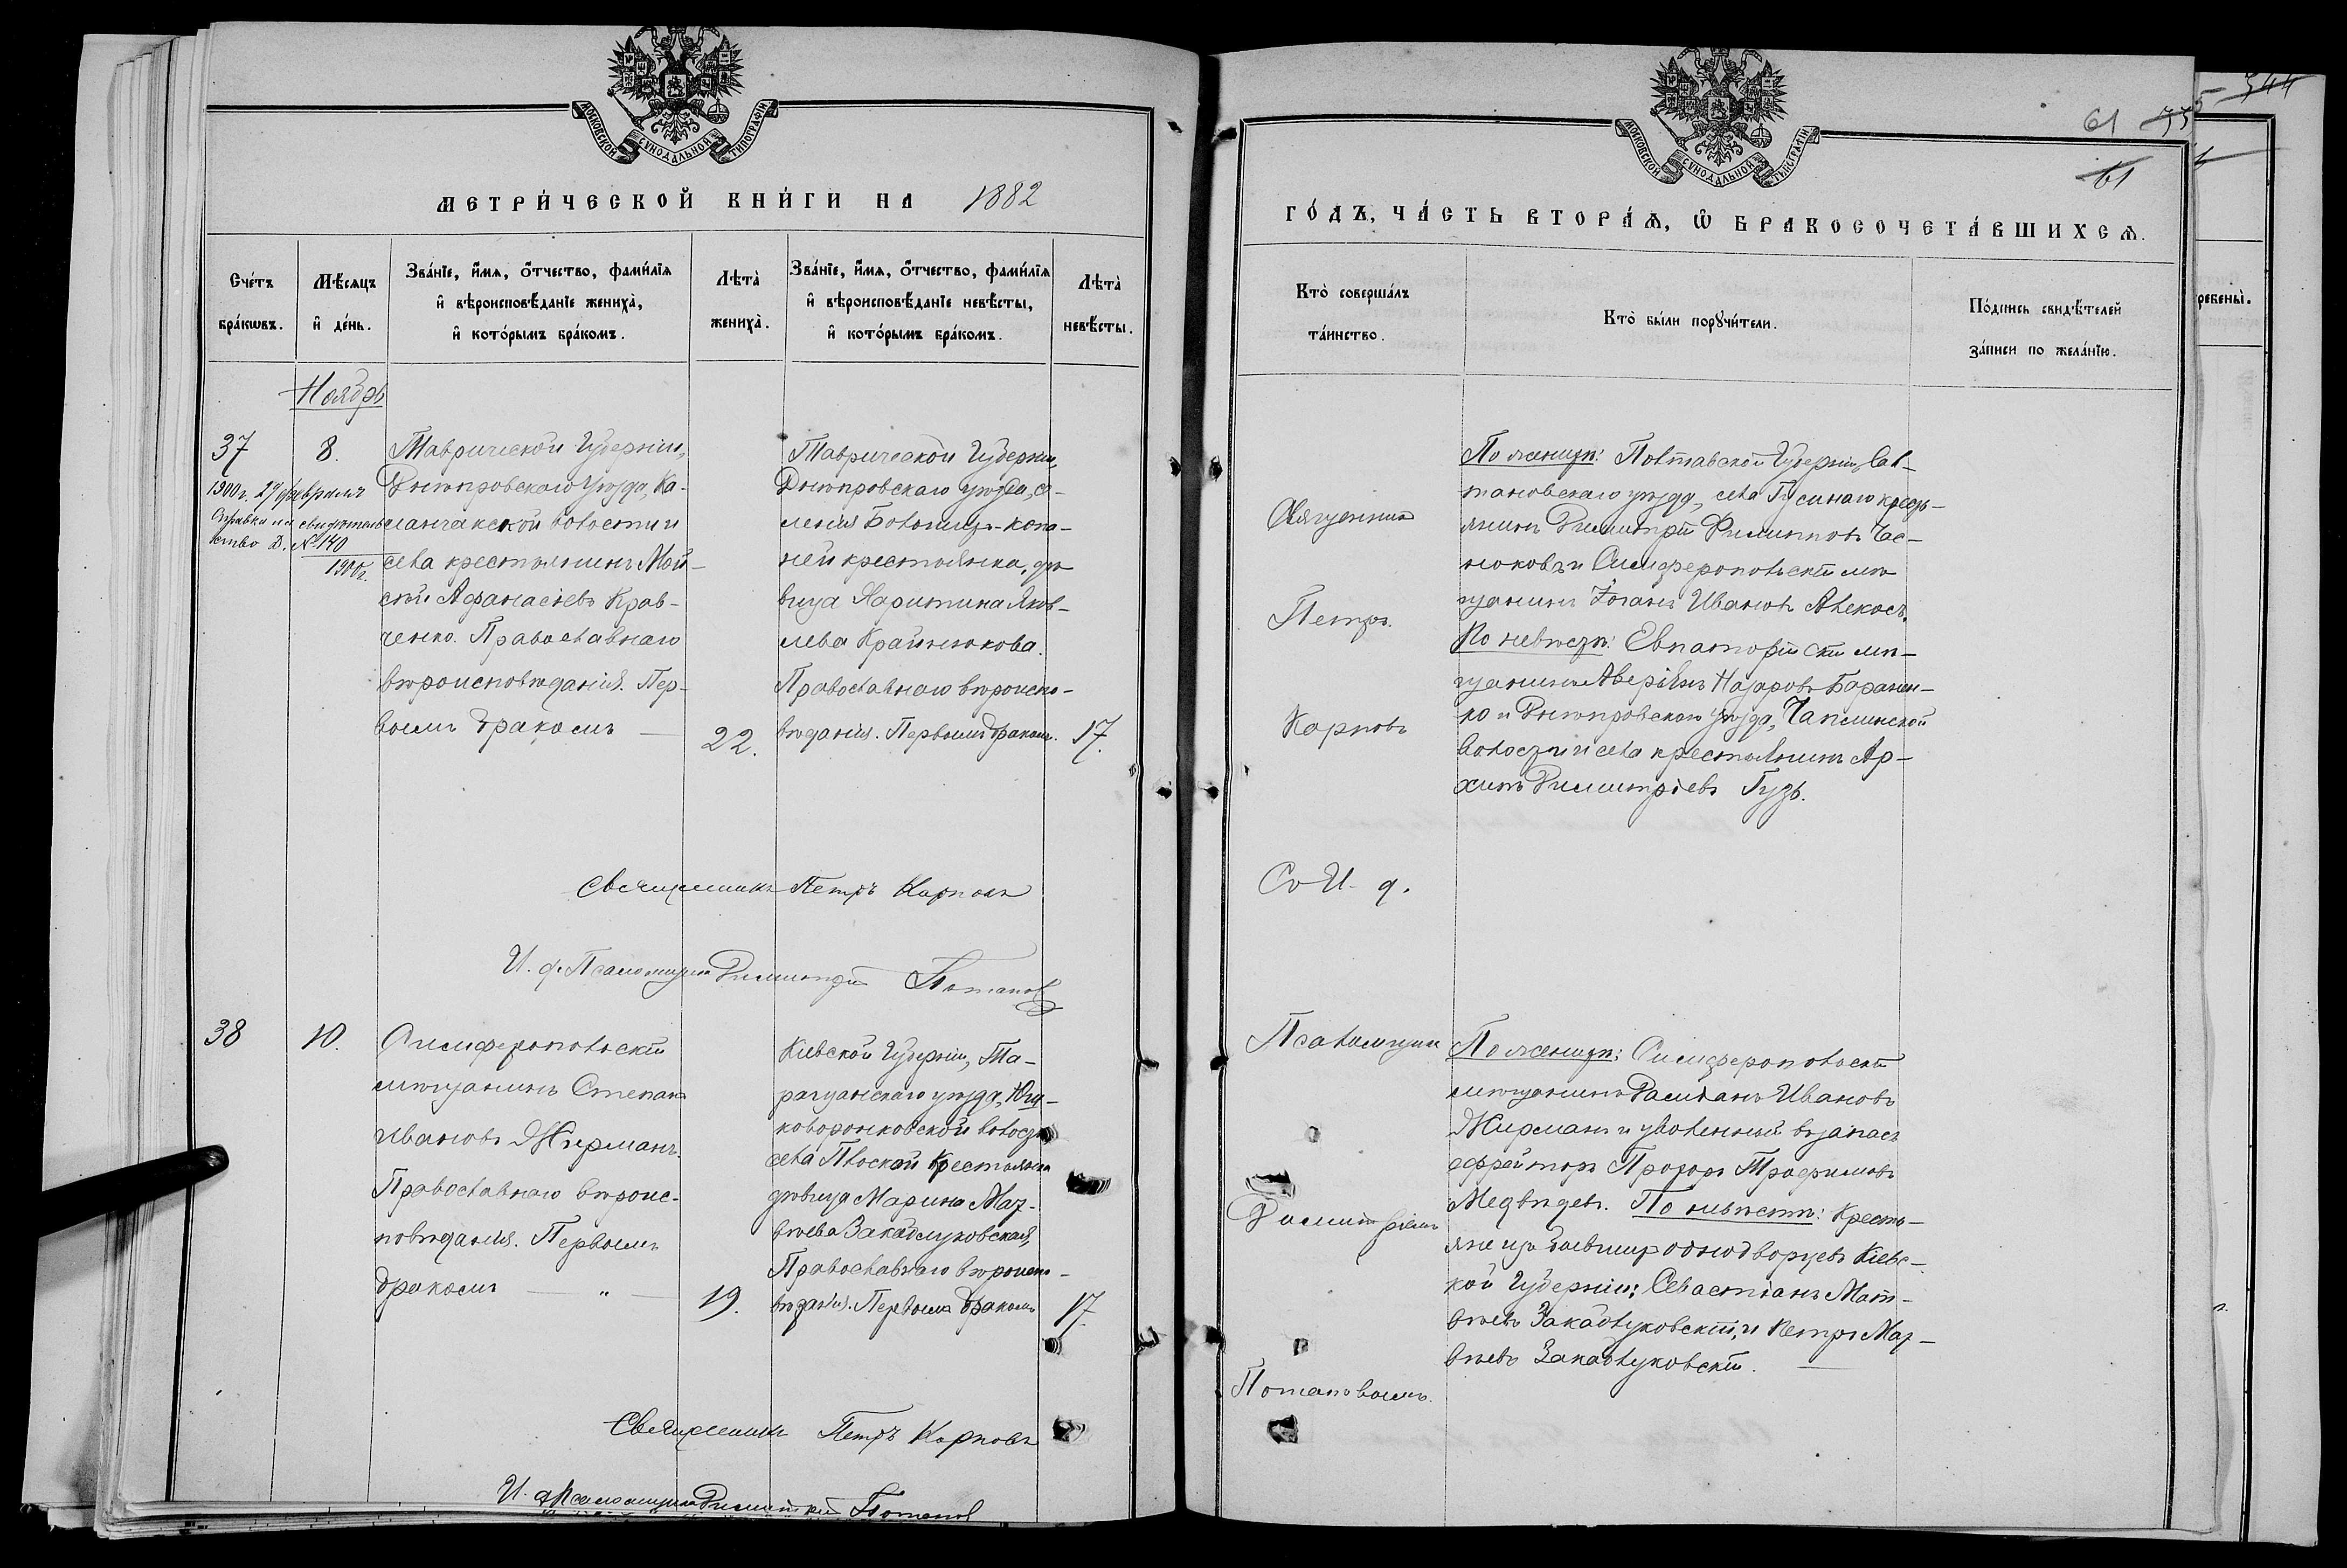 МОСКОВСКОЙ СѴНОДАЛЬНОЙ ТИПОГРАФІИ
МЕТРИ́ЧЕСКОЙ КНИ́ГИ НА 1882
Сче́тъ бра́кωвъ.
Мѣ́сяцъ и҆ де́нь.
Зва́нїе, и҆́мя, ѻ҆́тчество, фами́лїя
и҆ вѣроисповѣ́данїе жениха̀,
и҆ кото́рымъ бра́комъ.
Лѣта̀ жениха̀.
Зва́нїе, и҆́мя, ѻ҆́тчество, фами́лїя
и҆ вѣроисповѣ́данїе невѣ́сты,
и҆ кото́рымъ бра́комъ.
Лѣта̀ невѣ́сты.
Ноябрь
37
8.
1900 г. 29 февраля
Справка и свидѣтель
ство д. № 140
1900 г.
Таврической Губерніи,
Днѣпровскаго уѣзда, Ка-
ланчакской волости и
села крестьянинъ Мой-
сей Афанасіевъ Крав-
ченко. Православнаго
вѣроисповѣданія. Пер-
вымъ бракомъ —
22.
Таврической Губерніи,
Днѣпровскаго уѣзда, се-
ленія Большихъ-Копа-
ней крестьянка, дѣ-
вица Харитина Яков-
лева Крайнюкова.
Православнаго вѣроиспо-
вѣданія. Первымъ бракомъ.
17.
Священникъ Петръ Карповъ
И. д. Псаломщика Димитрій Потаповъ
38
10.
Симферопольскій
мѣщанинъ Степанъ
Ивановъ Жирманъ.
Православнаго вѣроис-
повѣданія. Первымъ
бракомъ — „ —
19.
Кіевской Губерніи, Та-
ращанскаго уѣзда,
ковской волости
села Плоской крестьянка
дѣвица Марина Мат-
вѣева Закаблуковская,
Православнаго вѣроиспо-
вѣданія. Первымъ бракомъ
17.
Священникъ Петръ Карповъ
И. д. Псаломщика Димитрій Потаповъ
МОСКОВСКОЙ СѴНОДАЛЬНОЙ ТИПОГРАФІИ
61 75
61
ГО́ДЪ, ЧА́СТЬ ВТОРА́Ѧ, Ѽ БРАКОСОЧЕТА́ВШИХСѦ.
Кто̀ соверша́лъ
та́инство.
Кто̀ бы́ли порꙋчи́тели.
По́дпись свидѣ́телей
за́писи по жела́нїю.
Священникъ
Петръ
Карповъ
Съ И. д.
Псаломщика
Димитріемъ
Потаповымъ.
По женихѣ: Полтавской Губерніи,
уѣзда, села Гусинаго кресть-
янинъ Димитрій Филиповъ Час-
нокови Симферопольскій мѣ-
щанинъ Іоганъ Ивановъ Алексъ.
По невѣстѣ: Евпаторійскій мѣ-
щанинъ Аверіянъ Назаровъ Баранен-
ко и Днѣпровскаго уѣзда, Чаплинской
волости и села крестьянинъ Ар-
хипъ Димитріевъ Гузь.
По женихѣ: Симферопольскій
мѣщанинъ Даміанъ Ивановъ
Жирманъ и уволенный въ запасъ
ефрейторъ Прохоръ Трофимовъ
Медвѣдевъ. По невѣстѣ: Кресть-
яне изъ бывшихъ однодворцевъ Кіевс-
кой Губерніи: Севастіанъ Мат-
вѣевъ Закаблуковскій, и Петръ Мат-
вѣевъ Закаблуковскій. —
544
ребены̀.